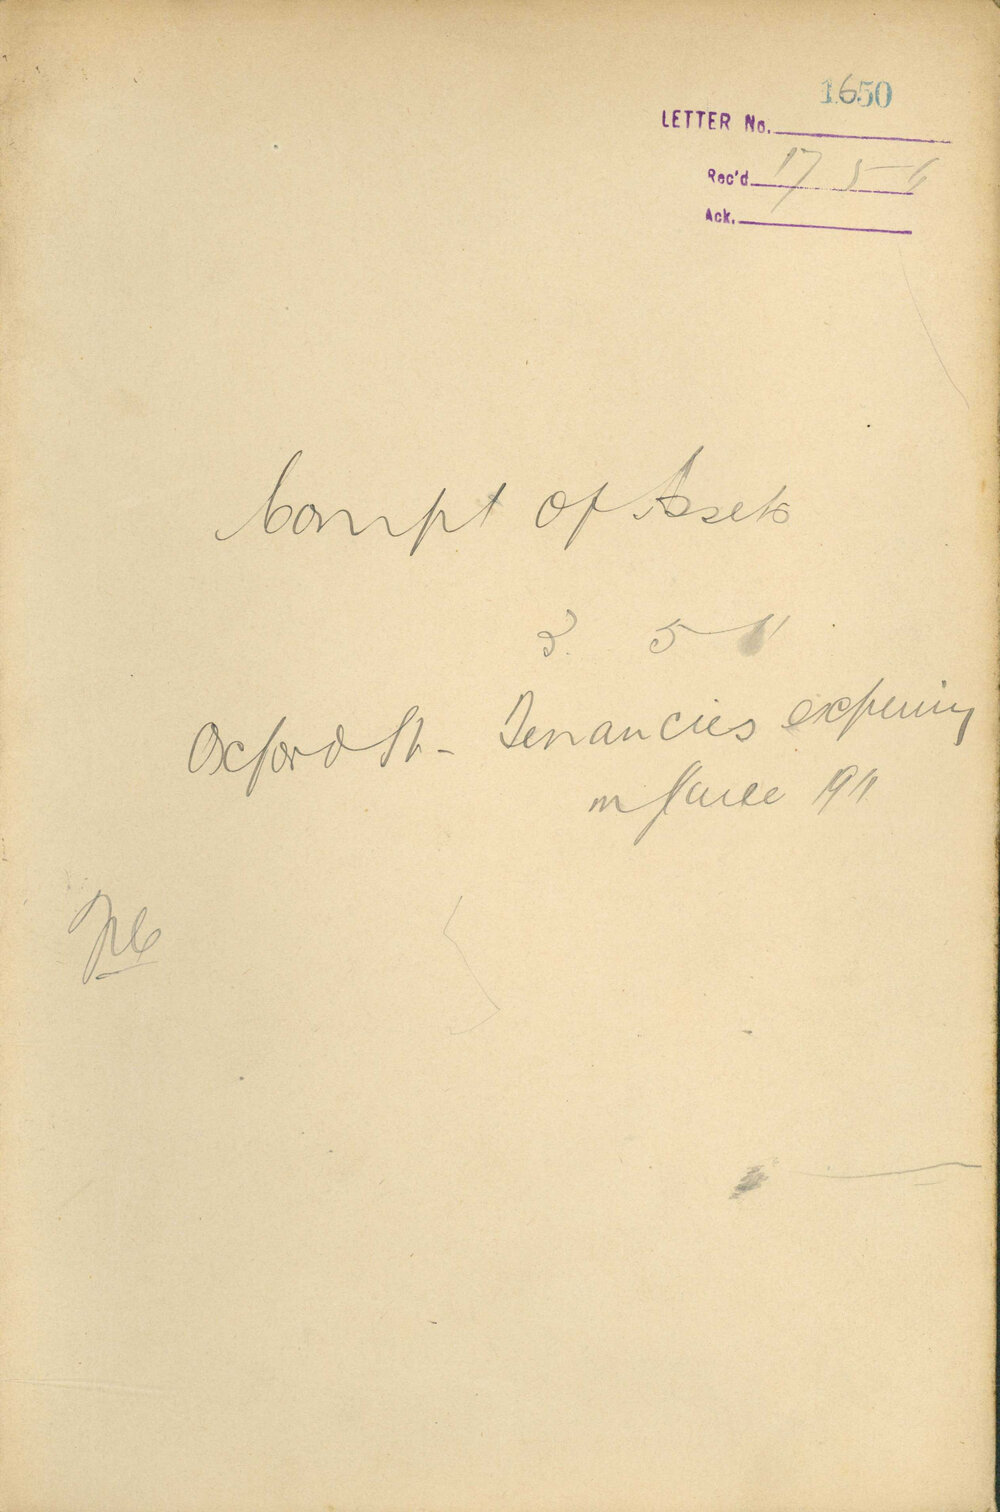 1650
LETTER No.
Rec'd 17 5 11
Ack.
Compt of Assets
3. 5 11
Oxford St - Tenancies expering
in 1911